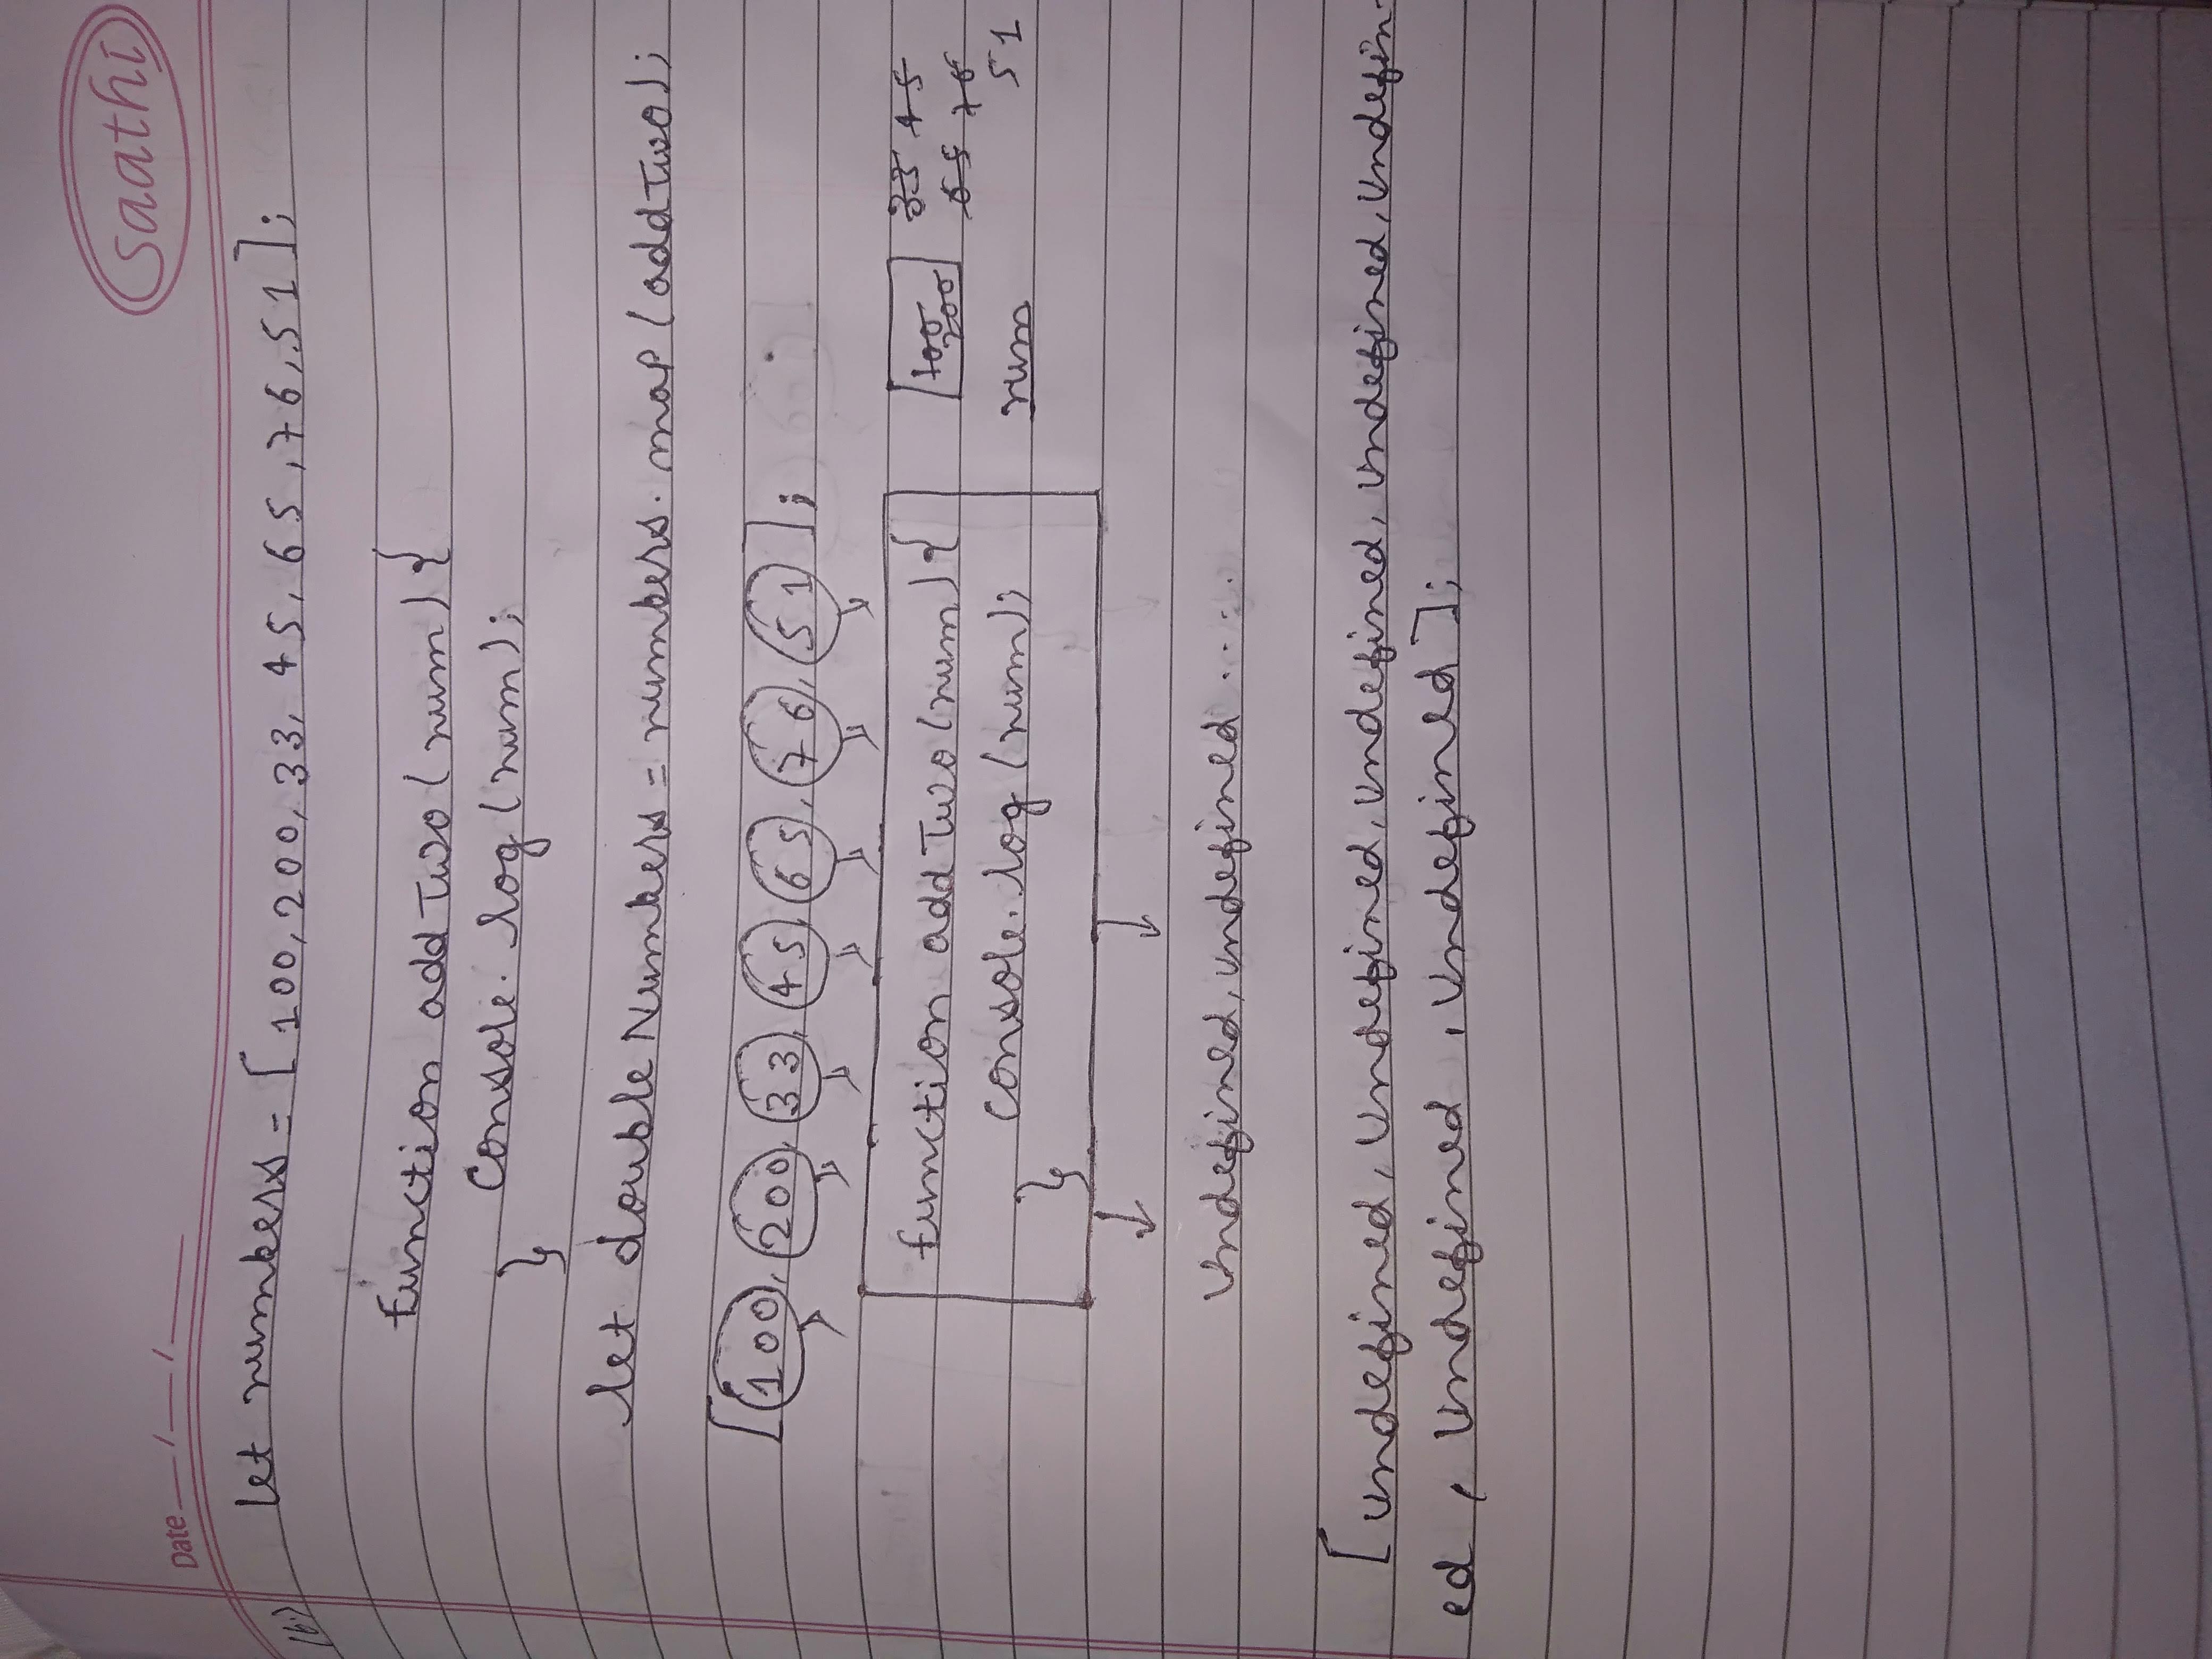 saathi
Date
(b)
let numbers = [100,200,33,45,65,76,51];
function addTwo(num){
console.log(num);
}
let doubleNumbers = numbers.map(addTwo);
[100,200,33,45,65,76,51];
function addTwo(num){
console.log(num);
}
100 33 45
200 65 76
num 51
undefined, undefined.....
[undefined, undefined, undefined, undefined, undefined, undefined, undefin-
ed, undefined, undefined];